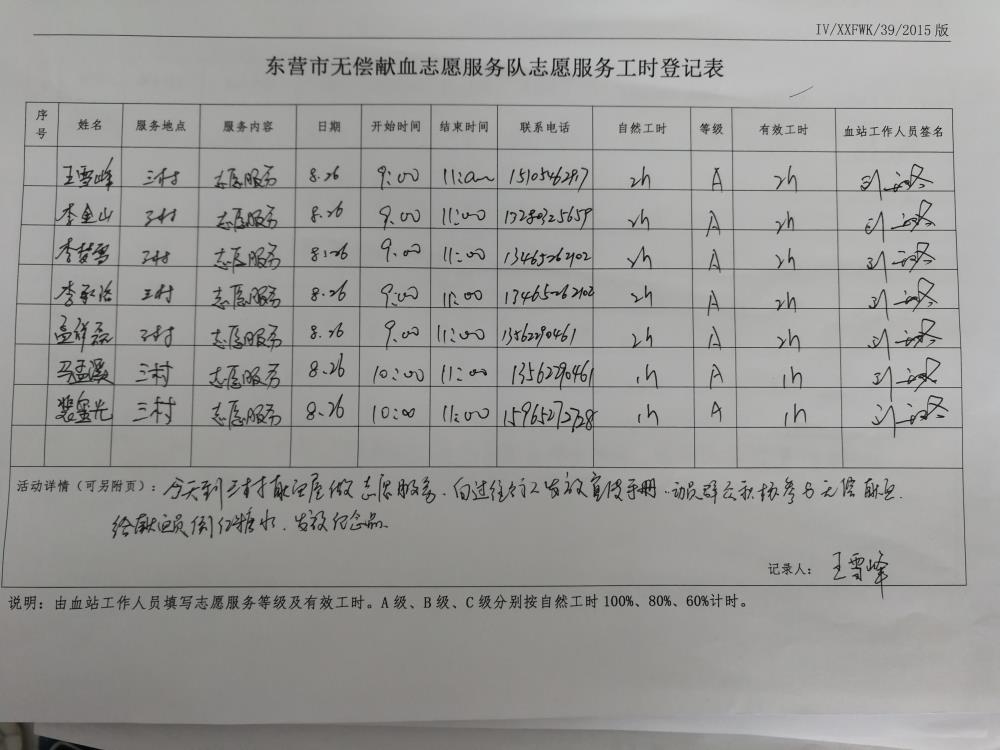 IV/XXFWK/39/2015版
东营市无偿献血志愿服务队志愿服务工时登记表
序号 姓名 服务地点 服务内容 日期 开始时间 结束时间 联系电话 自然工时 等级 有效工时 血站工作人员签名
王雪峰 三村 志愿服务 8.26 9:00 11:00 2h A 2h
李金山 三村 志愿服务 8.26 9:00 11:00 13280325659 2h A 2h
李梦雪 三村 志愿服务 8.26 9:00 11:00 13465262102 2h A 2h
李承浩 三村 志愿服务 8.26 9:00 11:00 13465262102 2h A 2h
孟祥磊 三村 志愿服务 8.26 9:00 11:00 1356290461 2h A 2h
马孟溪 三村 志愿服务 8.26 10:00 11:00 1356290461 1h A 1h
裴金光 三村 志愿服务 8.26 10:00 11:00 15965272728 1h A 1h
活动详情（可另附页）：今天到三村献血屋做志愿服务，向过往行人发放宣传手册，动员群众积极参与无偿献血.
给献血员倒红糖水，发放纪念品.
记录人：王雪峰
说明：由血站工作人员填写志愿服务等级及有效工时。A级、B级、C级分别按自然工时100%、80%、60%计时。